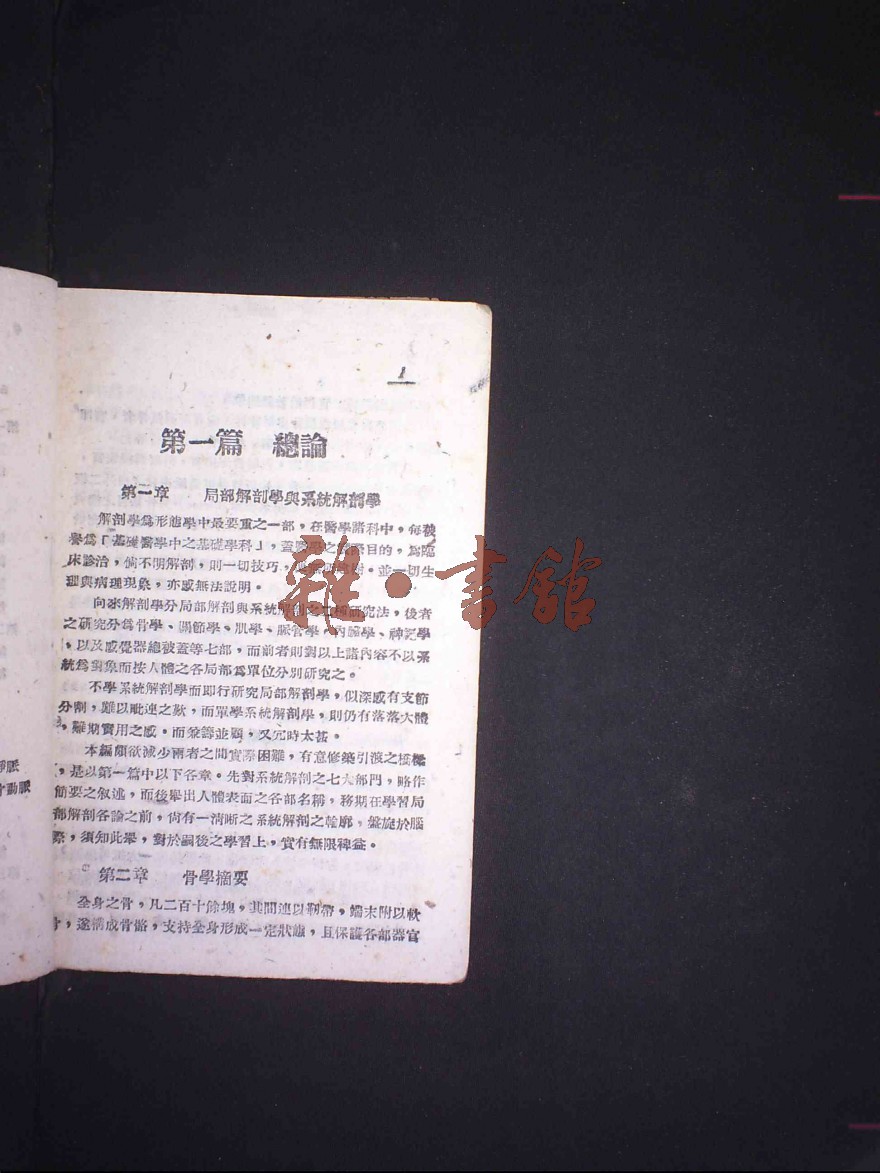 1
第一篇 總論
第一章 局部解剖學與系統解剖學
解剖學爲形態學中最要重之一部，在醫學諸科中，每被
譽爲「基礎醫學中之基礎學科」，蓋醫學之最終目的，爲臨
床診治，倘不明解剖，則一切技巧，並一切生
理與病理現象，亦感無法說明。
向來解剖學分局部解剖與系統解剖之二種研究法，後者
之研究分爲骨學、關節學、肌學、脈管學、內臟學、神經學
，以及感覺器總被蓋等七部，而前者則對以上諸內容不以系
統爲對象而按人體之各局部爲單位分別研究之。
不學系統解剖學而即行研究局部解剖學，似深感有支節
分割，難以毗連之歎，而單學系統解剖學，則仍有落落大體
，難期實用之感。而兼籌並顧，又冗時太甚。
本編頗欲減少兩者之間實際困難，有意修築引渡之橋樑
，是以第一篇中以下各章。先對系統解剖之七大部門，略作
簡要之叙述，而後舉出人體表面之各部名稱，務期在學習局
部解剖各論之前，尙有一清晰之系統解剖之輪廓，盤旋於腦
際，須知此舉，對於嗣後之學習上，實有無限裨益。
第二章 骨學摘要
全身之骨，凡二百十餘塊，其間連以靱帶，端末附以軟
骨，遂構成骨骼，支持全身形成一定狀態，且保護各部器官
雜·書館